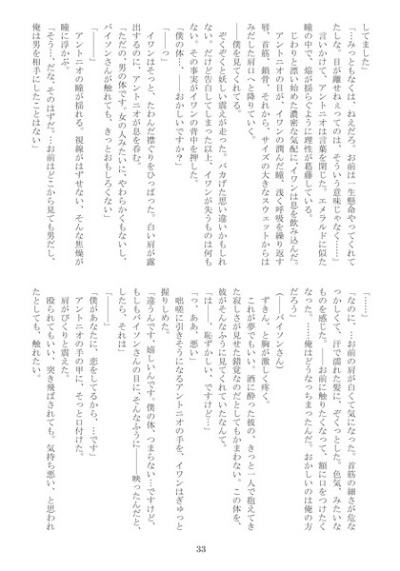 してました」
「…みっともなくは、ねえだろ。お前は一生懸命やってくれて
たしな。目が離せねぇってのは、そういう意味じゃなく……」
言いかけて、アントニオは言葉を閉じた。エメラルドに似た
瞳の中で、焔が揺らぐように理性が葛藤している。
じわりと漂い始めた濃密な気配に、イワンは息を飲み込んだ。
アントニオの目が、イワンの潤んだ瞳、浅く呼吸を繰り返す
唇、首筋、鎖骨、それから、サイズの大きなスウェットからは
みだした肩口へと降りていく。
――僕を見てくれてる。
ぞくぞくと妖しい震えが走った。バカげた思い違いかもしれ
ない。だけど告白してしまった以上、イワンが失うものは何も
ない。その事実がイワンの背中を押した。
「僕の体、……おかしいですか？」
「――っ」
イワンはそっと、たわんだ襟ぐりをひっぱった。白い肩が露
出するのに、アントニオが息を呑む。
「ただの、男の体です。女の人みたいに、やわらかくもないし、
バイソンさんが触れても、きっとおもしろくない」
「――――」
アントニオの瞳が揺れる。視線がはずせない、そんな焦燥が
瞳に浮かぶ。
「そう…、だな、そのはずだ。…お前はどこから見ても男だし、
俺は男を相手にしたことはない」
「……」
「なのに、…お前の肩が白くて気になった。首筋の細さが危な
っかしくて、汗で濡れた髪に、ぞくっとした。色気、みたいな
ものを感じた。――お前に触りたくなって、額に口をつけたく
なった。……俺はどうなっちまったんだ。おかしいのは俺の方
だろう」
（――バイソンさん）
ずきん、と胸が激しく疼く。
これが夢でもいい。酒に酔った彼の、きっと一人で抱えてき
た寂しさが見せた錯覚なのだとしてもかまわない。この体を、
彼がそんなふうに見てくれていたなんて。
「は――、恥ずかしい、ですけど…」
「っ、ああ、悪い」
咄嗟に引きそうになるアントニオの手を、イワンはぎゅっと
握りしめた。
「違うんです。嬉しいんです。僕の体、つまらない…ですけど、
もしもバイソンさんの目に、そんなふうに――映ったんだと、
したら、それは」
「――」
「僕があなたに、恋をしてるから、…です」
アントニオの手の甲に、そっと口付けた。
肩がびくりと震えた。
殴られてもいい、突き飛ばされても。気持ち悪い、と思われ
たとしても、触れたい。
33